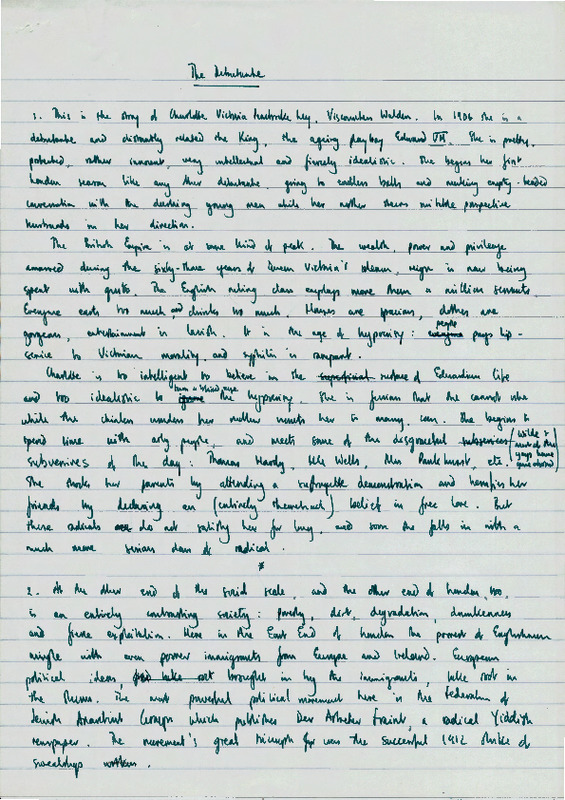 The Debutante
1. This is the story of Charlotte Victoria Pembroke Ley, Viscountess Walden. In 1906 she is a
debutante and distantly related the King, the ageing playboy Edward VII. She is pretty,
protected, rather innocent, very intellectual and fiercely idealistic. She begins her first
London season like any other debutante, going to endless balls and making empty-headed
conversation with the dashing young men while her mother steers suitable prospective
husbands in her direction.
The British Empire is at some kind of peak. The wealth, power and privilege
amassed during the sixty-three years of Queen Victoria's reign is now being
spent with gusto. The English ruling class employs more than a million servants.
Everyone eats too much and drinks too much. Houses are spacious, clothes are
gorgeous, entertainment is lavish. It is the age of hypocrisy: everyone people pays lip-
service to Victorian morality and syphilis is rampant.
Charlotte is too intelligent to believe in the superficial nature of Edwardian life
and too idealistic to ignore turn a blind eye the hypocrisy. She is furious that she cannot vote
while the chinless wonders her mother wants her to marry, can. She begins to
spend time with arty people, and meets some of the disgraceful subversives (Wilde & most of the gays have gone abroad)
subversives of the day: Thomas Hardy, HG Wells, Mrs Pankhurst, etc.
She shocks her parents by attending a suffragette demonstration and horrifies her
friends by declaring an (entirely theoretical) belief in free love. But
these radicals do not satisfy her for long, and soon she falls in with a
much more serious class of radical.
*
2. At the other end of the social scale, and the other end of London, too,
is an entirely contrasting society: poverty, dirt, degradation, drunkenness
and fierce exploitation. Here in the East End of London the poorest of Englishmen
mingle with even poorer immigrants from Europe and Ireland. European
political ideas, brought in by the immigrants, take root in
the slums. The most powerful political movement here is the Federation of
Jewish Anarchist Groups which publishes Der Arbeter Fraint, a radical Yiddish
newspaper. The movement's great triumph was the successful 1912 strike of
sweatshop workers.